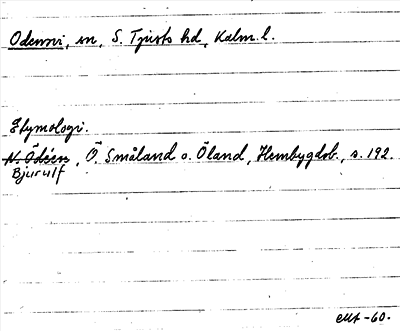 Odensvi, sn, S. Tjusts hd, Kalm. l.
Etymologi.
N. Ödéen, Ö. Småland o. Öland, Hembygdsb., s. 192.
Bjurulf
-60.